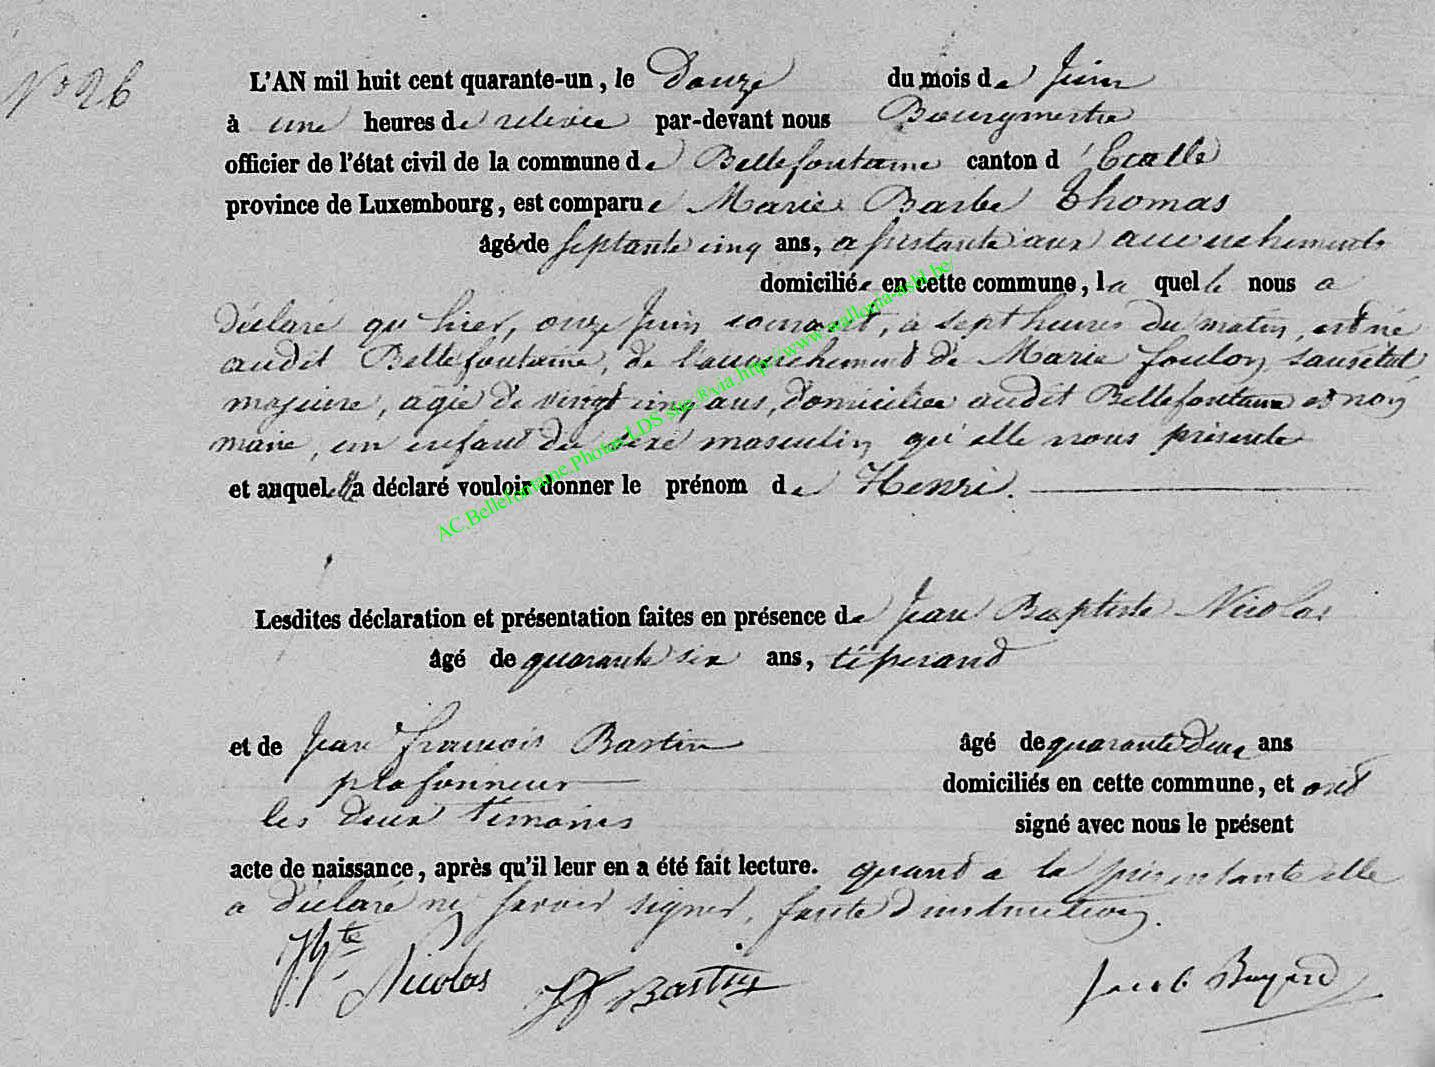 N° 26
L'AN mil huit cent quarante-un, le Douze du mois de Juin
à une heures de relevée par-devant nous Bourgmestre
officier de l'état civil de la commune de Bellefontaine canton d'Etalle
province de Luxembourg, est comparue Marie Barbe Thomas
âgée de septante cinq ans, assistante aux accouchements
domiciliée en cette commune, laquelle nous a
déclaré qu'hier, onze Juin courant, à sept heures du matin, est né
audit Bellefontaine, de l'accouchement de Marie Foulon, sans état
majeure, agée de vingt cinq ans, domiciliée audit Bellefontaine et non
marié, un enfant du sexe masculin qu'elle nous présente
et auquel elle a déclaré vouloir donner le prénom de Henri.
AC.Bellefontaine.Photos.LDS site ®via http://www.wallonia-asbl.be/
Lesdites déclaration et présentation faites en présence de Jean Baptiste Nicolas
âgé de quarante six ans, tisserand
et de Jean François Bastin âgé de quarante deux ans
plafonneur domiciliés en cette commune, et ont
les deux témoins signé avec nous le présent
acte de naissance, après qu'il leur en a été fait lecture. quand a la présentante elle
a déclaré ne savoir signer, faute d'instruction.
Nicolas JF Bastin Jacob Buyard